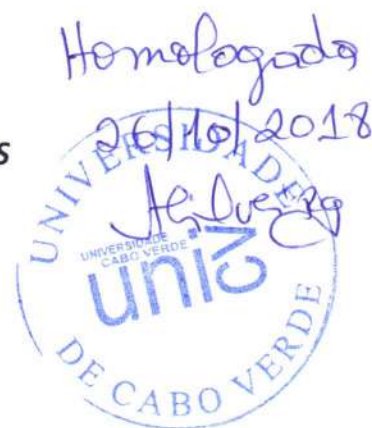 Homologada
26/10/2018
s
UNIVERSIDADE
DE CABO VERDE
UNIVERSIDADE
CABO VERDE
unicv